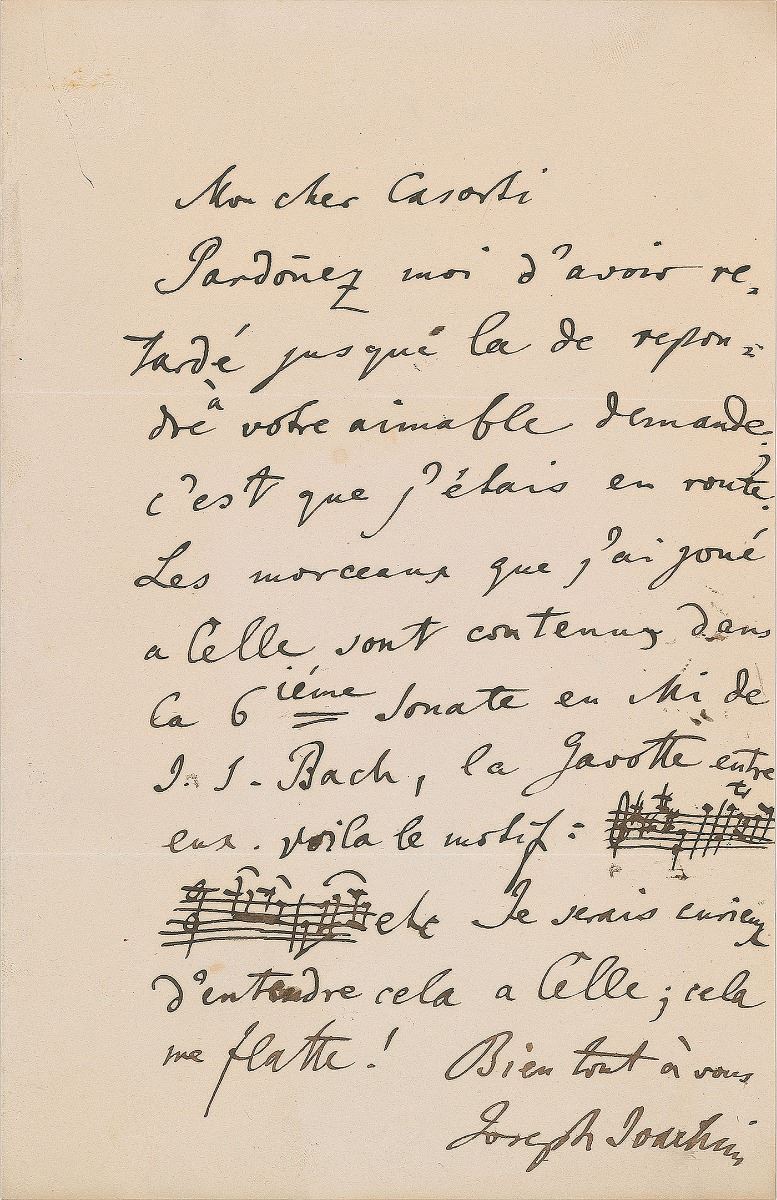 Mon cher Casorti
Pardoñez moi d'avoir re-
tardé jusque la de repon=
dre à votre aimable demande;
c'est que j'étais en route.
Les morceaux que j'ai joué
a Celle sont contenus dans
la 6ième Sonate en Mi de
J. S. Bach, la Gavotte entre
eux. voila le motif:
etc Je serais curieux
d'entendre cela a Celle; cela
me flatte! Bien tout à vous
Joseph Joachim